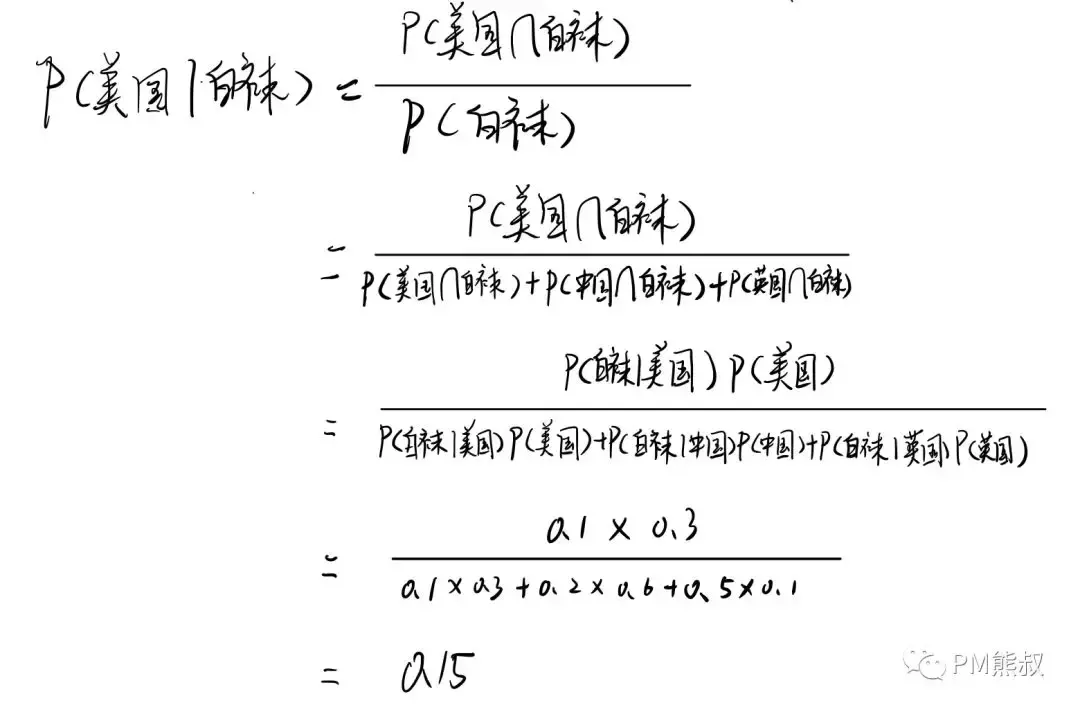 P(美国|白袜) = P(美国∩白袜) / P(白袜)
= P(美国∩白袜) / P(美国∩白袜)+P(中国∩白袜)+P(英国∩白袜)
= P(白袜|美国)P(美国) / P(白袜|美国)P(美国)+P(白袜|中国)P(中国)+P(白袜|英国)P(英国)
= 0.1×0.3 / 0.1×0.3+0.2×0.6+0.5×0.1
= 0.15
PM熊叔